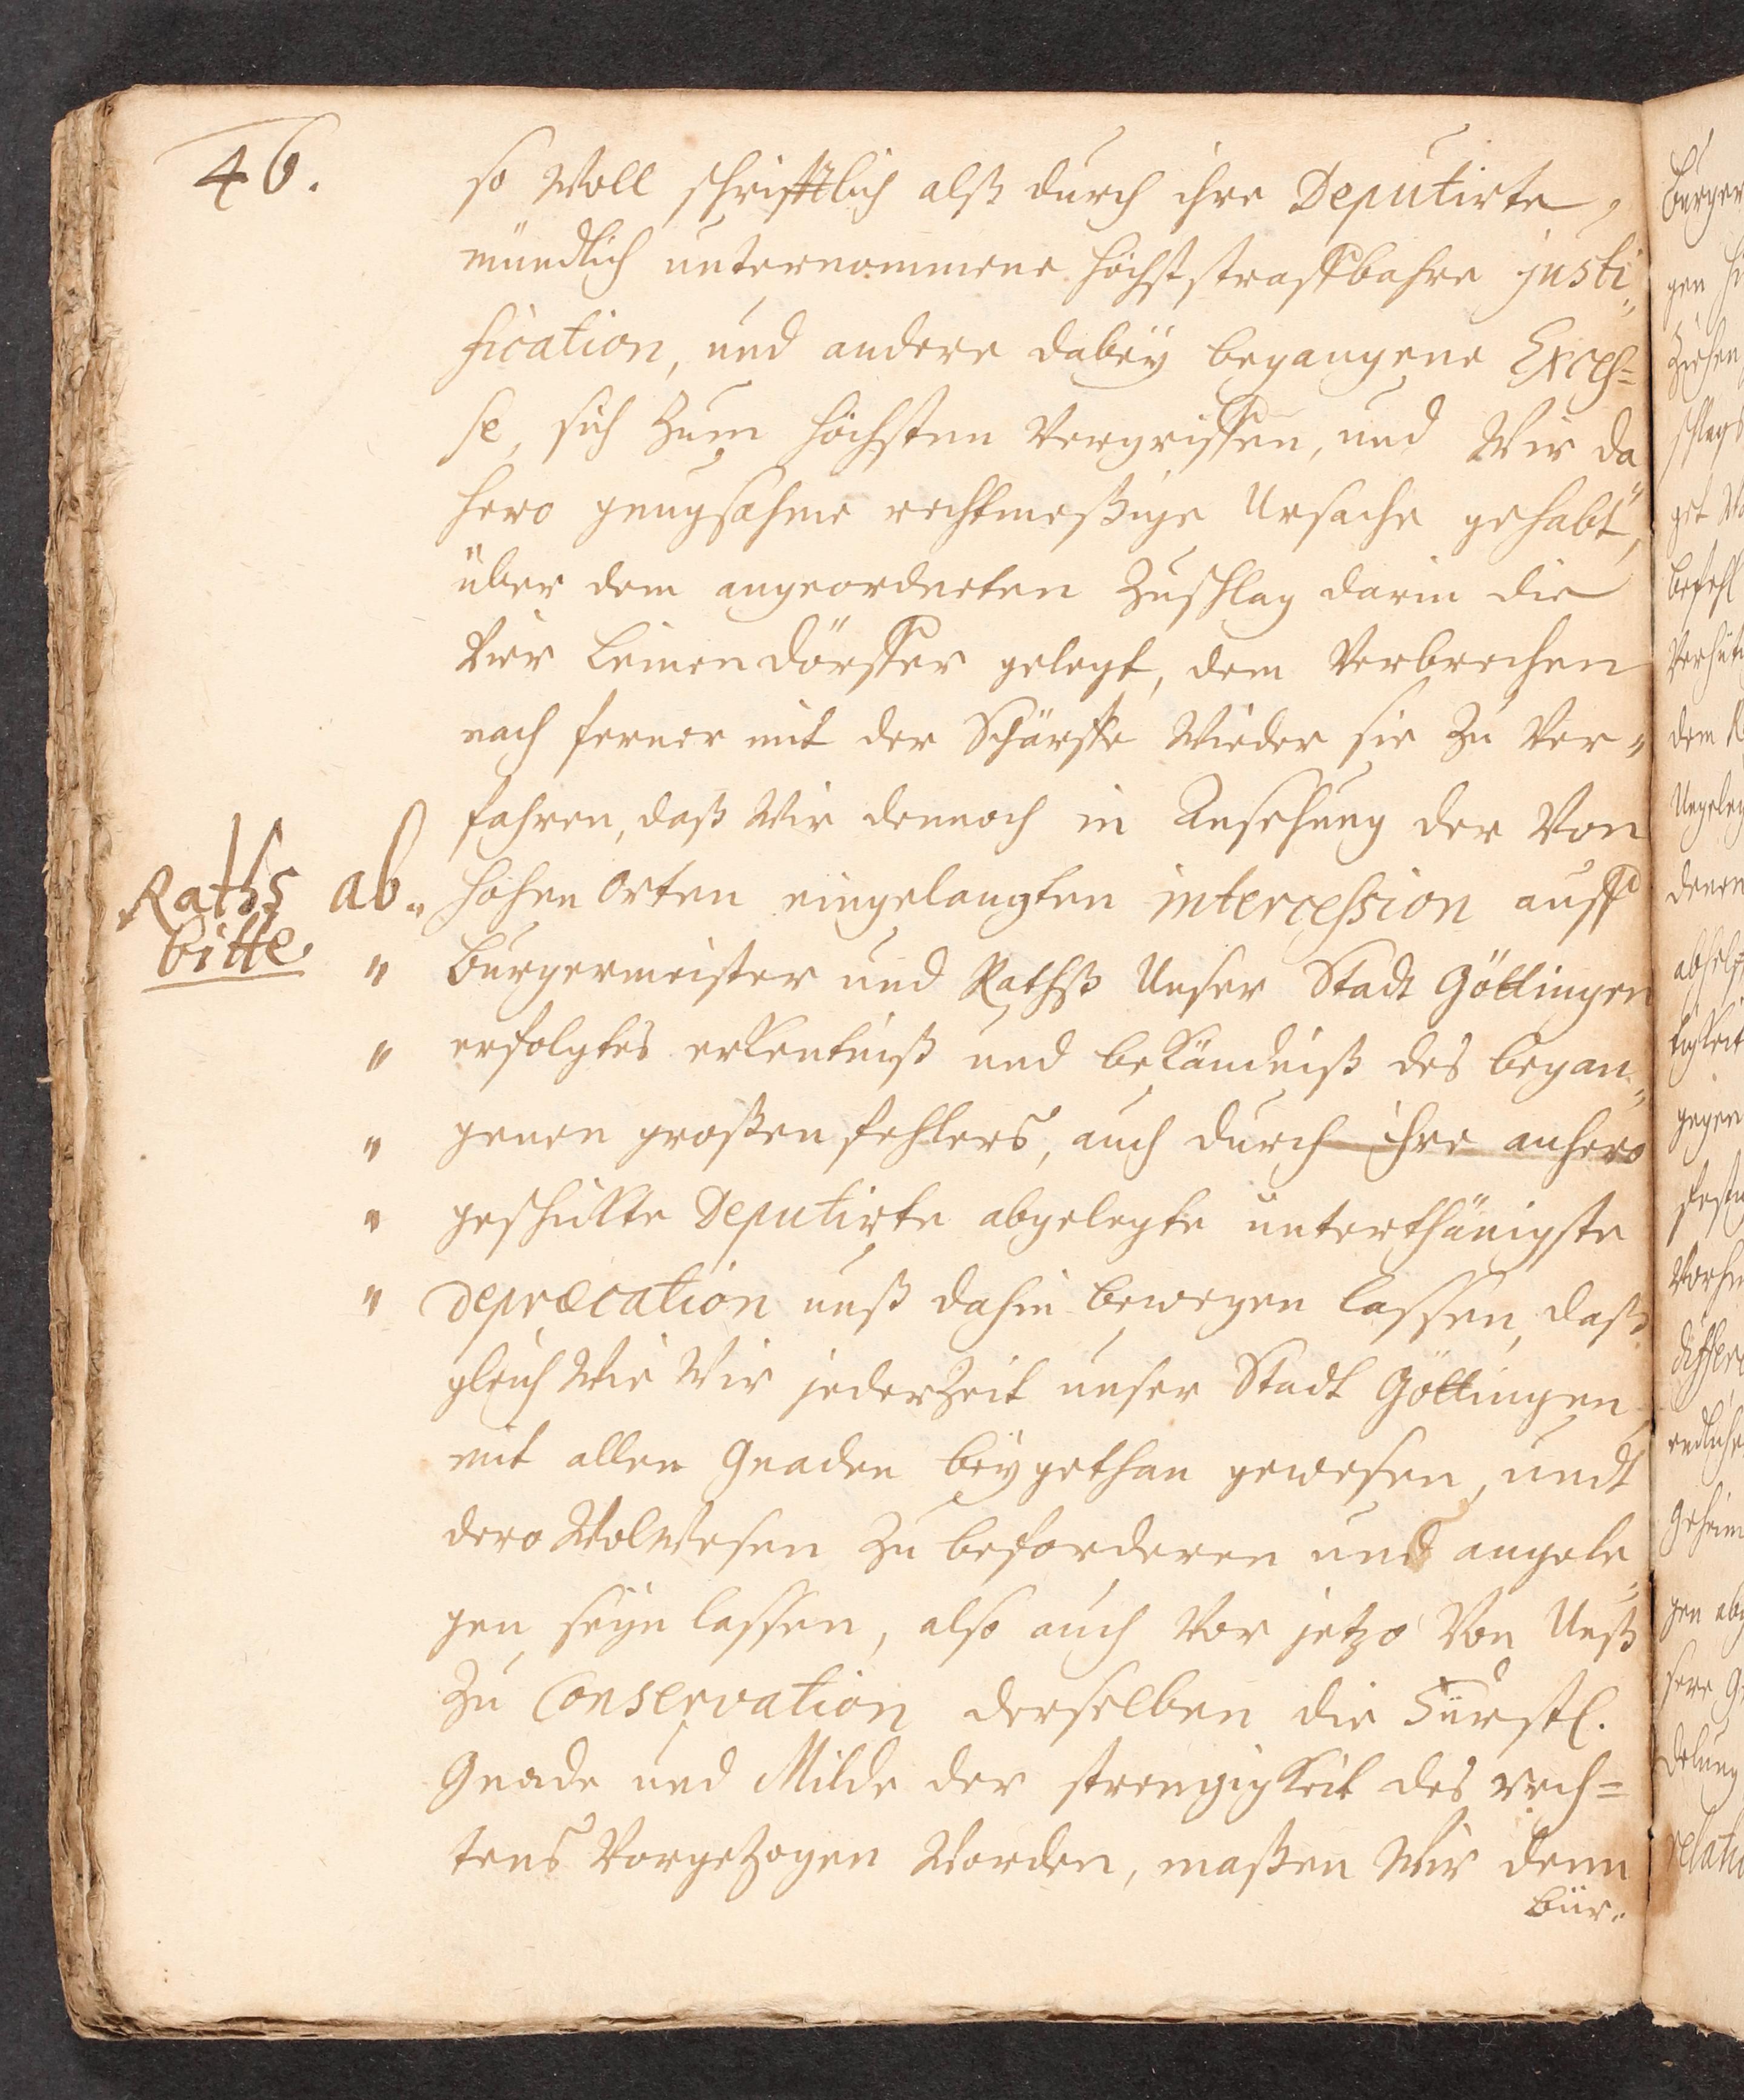 46.
so Woll schrifftlich alß durch ihre Deputirte,
mündlich unternommene höchststraffbahre justi„
fication, und andere dabeÿ begangene Exces=
se, sich Zum höchsten Vergriffen, und Wir da„
hero gnugsahme rechtmeßige Ursache gehabt,
über dem angeordneten Zuschlag darin die
Vier Leinendörffer gelegt, dem Verbrechen
nach ferner mit der Schärffe Wieder sie Zu Ver„
fahren, daß Wir dennoch in Ansehung der Von
Raths ab„
bitte.
hohen Orten eingelangten intercession auff
„ Burgermeister und Rathß Unser Stadt Göttingen
„ erfolgtes erkentniß und bekändniß des began„
„ genen großen fehlers, auch durch ihre anhero
„ geschickte Deputirte abgelegte unterthänigste
„ depræcation unß dahin bewegen lassen, daß
gleich Wie Wir jederZeit unser Stadt Göttingen
mit allen Gnaden beÿgethan gewesen, undt
dero Wolwesen Zu beforderen und angele„
gen seÿn lassen, also auch Vor jetzo Von Unß
Zu Conservation derselben die Fürstl.
Gnade und Milde der strengigkeit des rech=
tens VorgeZogen Worden, maßen Wir denn
Bür„